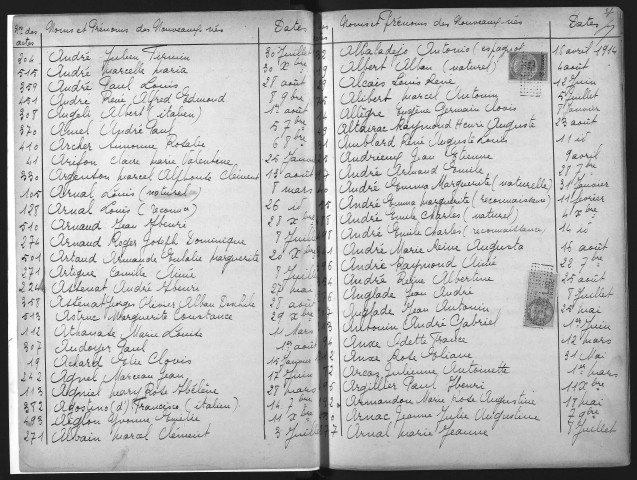 Nos des actes Noms et Prénoms des Nouveaux-nés Dates
304 André Julien Firmin 30 Juillet
515 André Marcelle Maria 30 Xbre
359 André Paul Louis 28 août
451 André René Alfred Edmond 8 9bre
308 Angeli Albert (italien) 1er août
370 Armel André Paul 5 7bre
410 Archer Simonne Rosalie 6 8bre
41 Arifon Claire Marie Valentine 24 Janv
330 Argenton Marcel Alphonse Clément 13 août
105 Arnal Louis (naturel) 8 mars
128 Arnal Louis (reconnu) 26 id
510 Arnaud Jean Henri 28 Xbre
274 Arnaud Roger Joseph Dominique 9 Juillet
501 Artaud Armande Eulalie Marguerite 20 Xbre
271 Artigues Camille Aimée 8 Juillet
224 Astenat André Henri 22 mai
358 Astenat Olivier Alban 27 août
513 Astruc Marguerite Constance 29 Xbre
112 Athanase Marie Louise 11 Mars
307 Paul 1er août
19 Elie Clovis 15 Janvier
242 Agniel Marceau Jean 17 Juin
113 Agniel Mary Rose Hélène 27 mars
382 Agostino (d') Francisco (italien) 14 7bre
493 Aiglon Yvonne Emélie 11 Xbre
271 Albain Marcel Clément 3 Juillet
Noms et Prénoms des Nouveaux-nés Dates
Albaladejo Antonio (espagnol) 16 avril 1914
Albert Alban (naturel) 4 août
Alcais Louis René 12 Juin
Alibert Marcel Antonin 5 Juillet
Allègre Eugène Germain Clovis 9 Janvier
Altairac Raymond Henri Auguste 23 août
Amblard René Auguste Louis 11 id
Andrieux Jean Etienne 9 avril
André Armand Emile 28 7bre
André Emma Marguerite (naturelle) 31 Janvier
André Emma Marguerite (reconnaissance) 11 février
André Emile Charles (naturel) 4 Xbre
André Emile Charles (reconnaissance) 14 id
André Marie Reine Augusta 16 août
André Raymond Aimé 22 7bre
André Reine Albertine 25 août
Anglade Jean André 8 Juillet
Anglade Jean Antonin 25 mai
André Gabriel 1er Juin
Anxe Odette France 12 mars
Anxe Rose Eliane 31 Mai
Arcas Julienne Antoinette 1er mars
Argillier Paul Henri 11 Xbre
Armandon Marie Rose Augustine 17 mai
Arnac Jeanne Julie Augustine 7 9bre
Arnal Marie Jeanne 9 Juillet